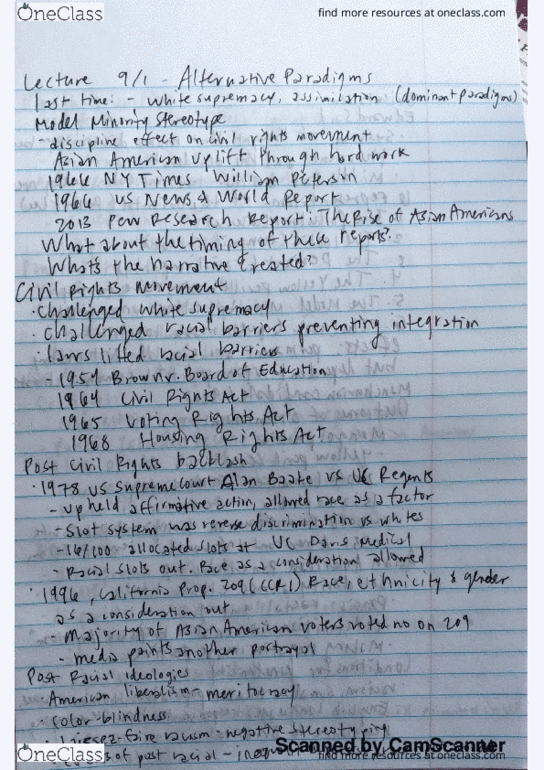 OneClass
find more resources at oneclass.com
Lecture 9/1 - Alternative Paradigms
last time: - white supremacy, assimilation (dominant paradigms)
Model Minority Stereotype
- discipline effect on civil rights movement
Asian American uplift through hard work
1966 NY Times William Peterson
1966 US News & World Report
2013 Pew Research Report: The Rise of Asian Americans
What about the timing of these reports?
What's the narrative created?
Civil Rights Movement
· challenged white supremacy
· challenged racial barriers preventing integration
· laws lifted racial barriers
- 1954 Brown v. Board of Education
1964 Civil Rights Act
1965 Voting Rights Act
1968 Housing Rights Act
Post Civil Rights backlash
· 1978 US Supreme court Alan Baake vs UC Regents
- upheld affirmative action, allowed race as a factor
- Slot system was reverse discrimination vs whites
- 16/100 allocated slots at UC Davis Medical
- Racial slots out. Race as a consideration allowed
· 1996, California Prop. 209 (CCRI) Race, ethnicity & gender
as a consideration out
- Majority of Asian American voters voted no on 209
- media paints another portrayal
Post Racial ideologies
· American liberalism - meritocracy
· color-blindness
· Laissez-faire racism - negative stereotyping
of post racial -
Scanned by CamScanner
OneClass
find more resources at oneclass.com